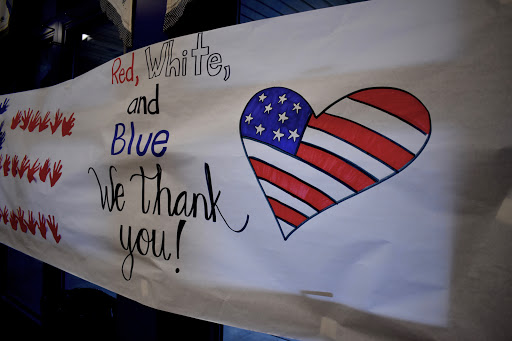 Red, White,
and
Blue
We Thank
you!